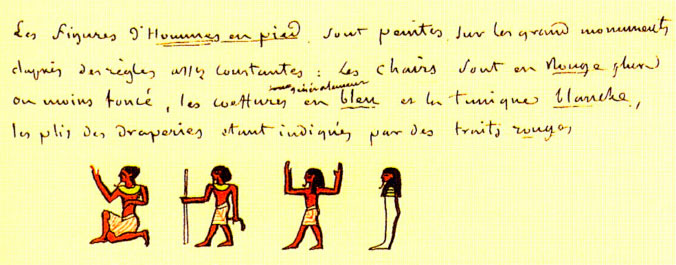 Les figures d'Hommes en pied sont peintes sur les grand monuments
d'après des règles assez constantes : les chairs sont en Rouge plus
ou moins foncé, les coëffures généralement en bleu et la tunique blanche,
les plis des draperies étant indiqués par des traits rouges